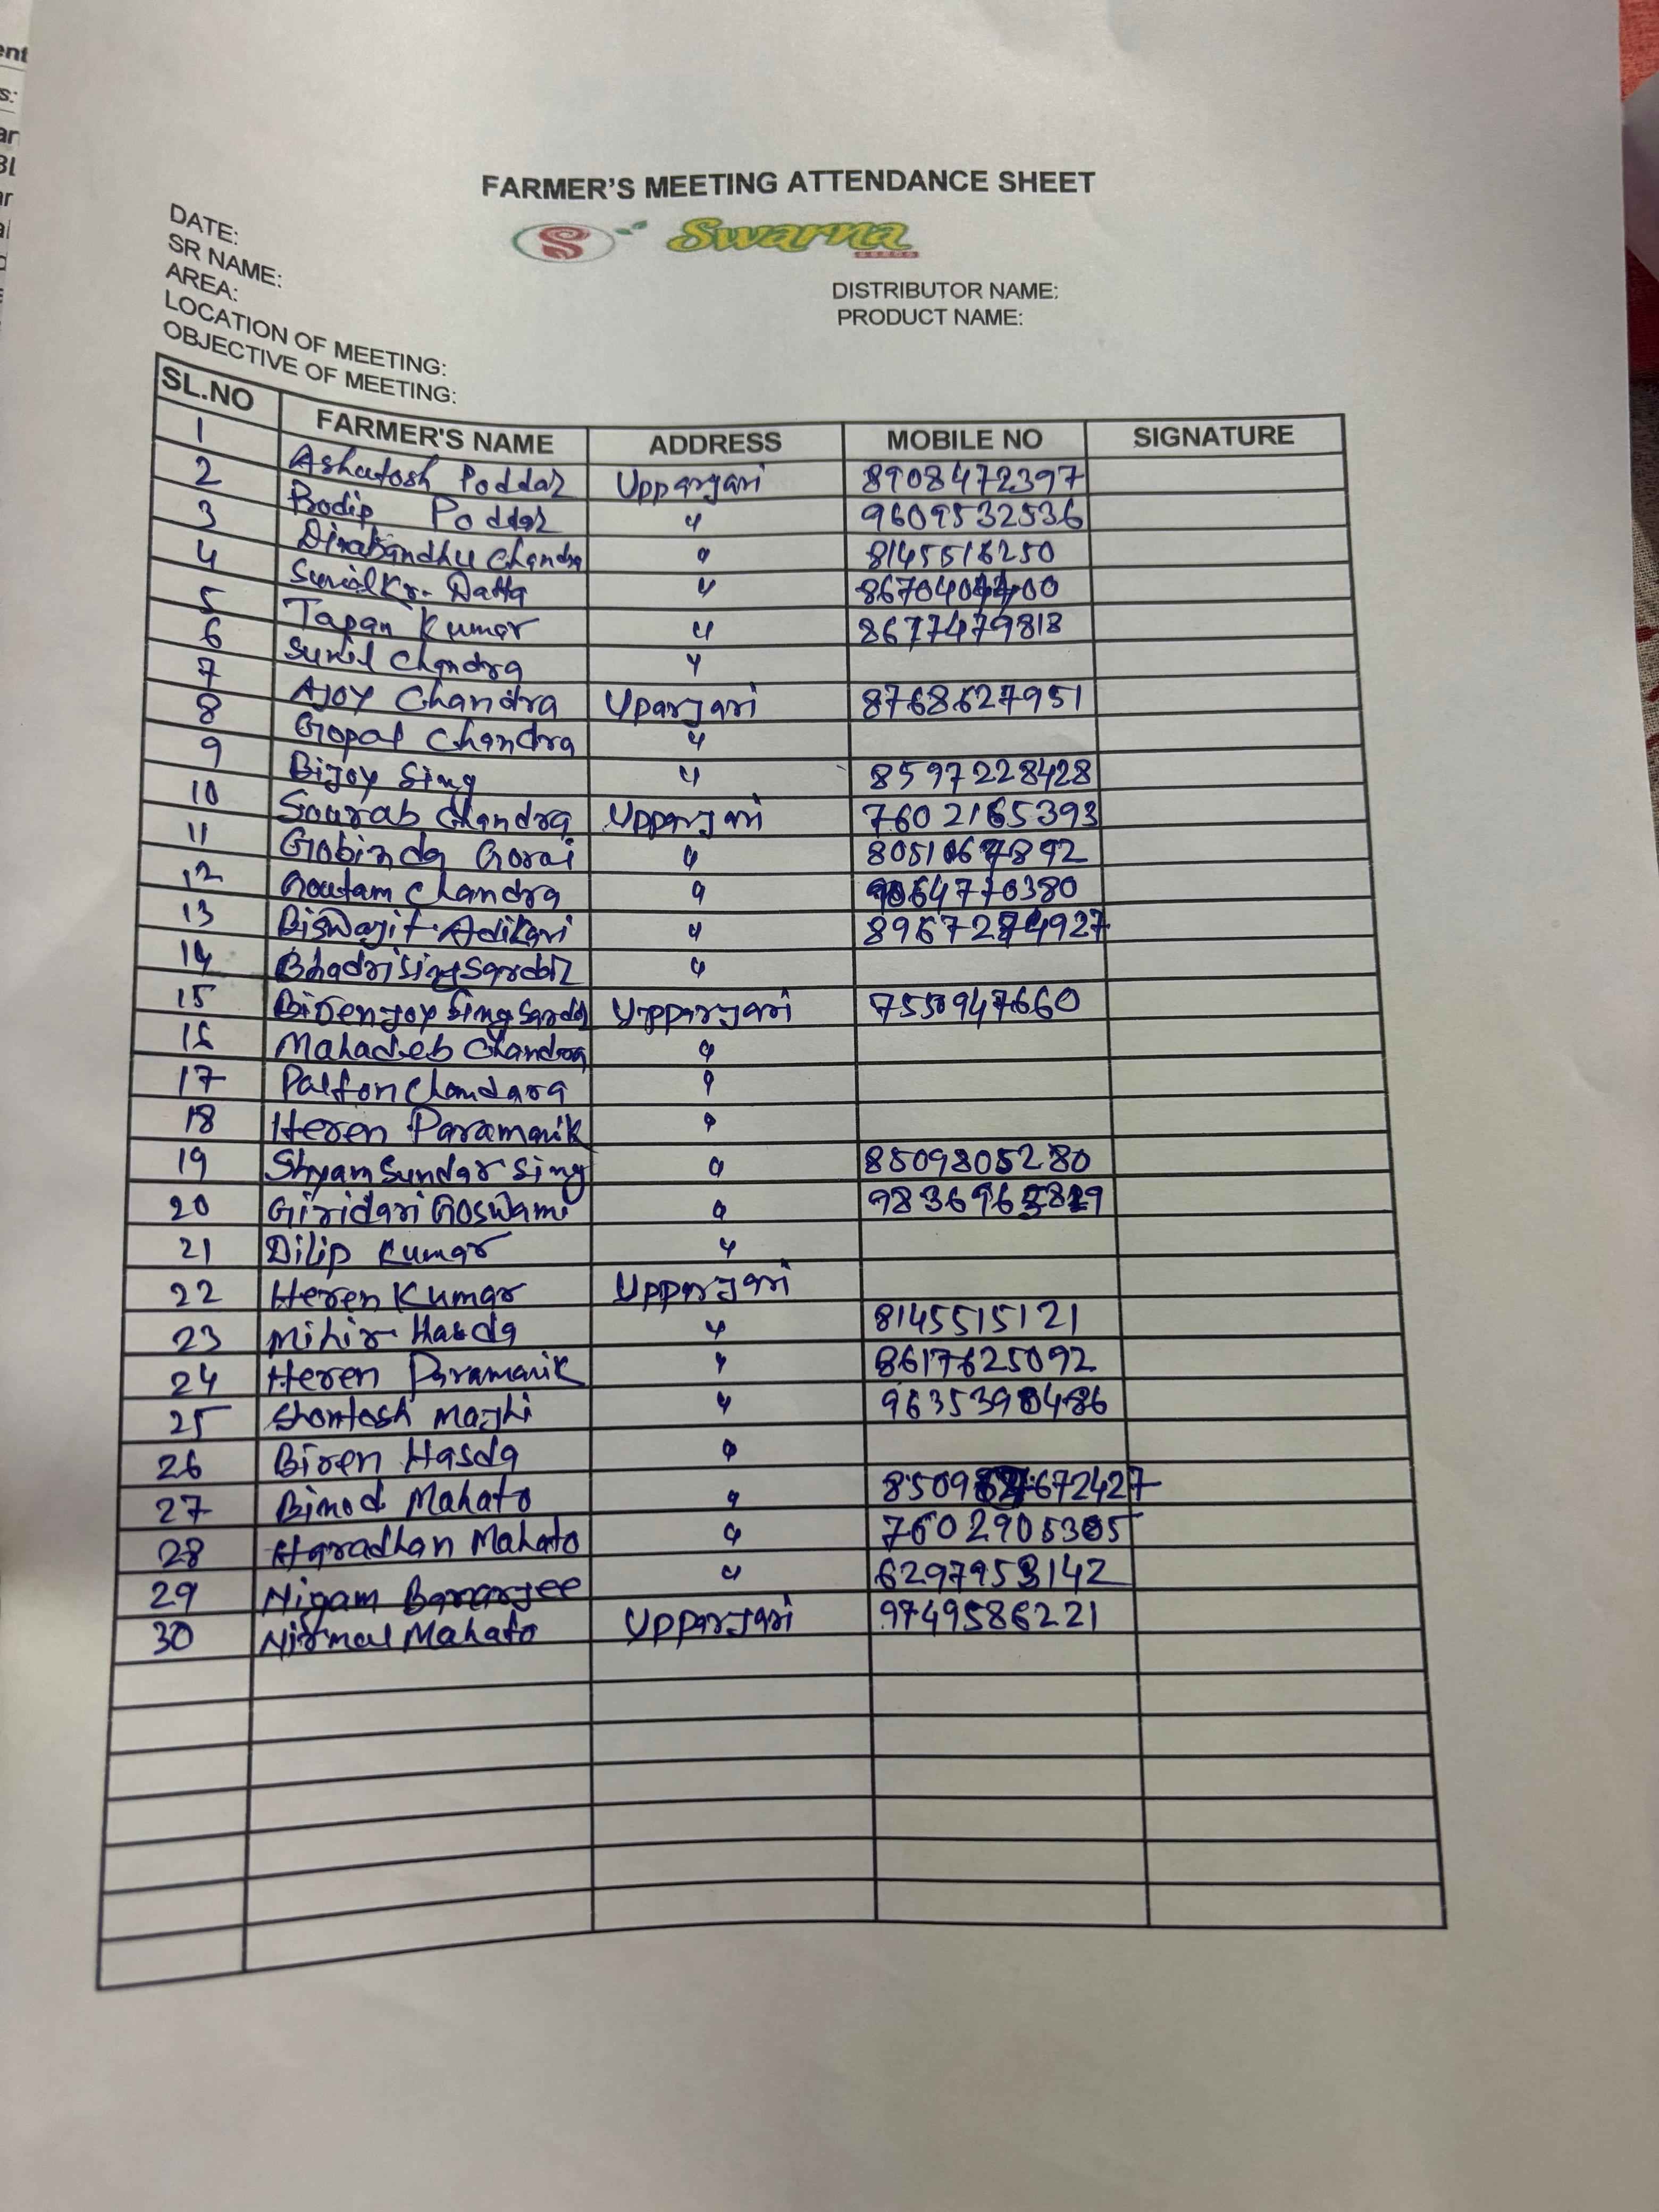 ent
s:
ar
BL
ar
al
FARMER'S MEETING ATTENDANCE SHEET
S Swarna
SEEDS
DATE:
SR NAME:
AREA:
LOCATION OF MEETING:
OBJECTIVE OF MEETING:
DISTRIBUTOR NAME:
PRODUCT NAME:
SL.NO FARMER'S NAME ADDRESS MOBILE NO SIGNATURE
1 Ashutosh Poddar Upparjari 8908472397
2 Prodip Poddar " 9609532536
3 Dinabandhu Chandra " 8145516250
4 Sunil Kr. Datta "
5 Tapan Kumar " 8677479818
6 Sunil Chandra "
7 Ajoy Chandra Uparjari 8768627951
8 Gopal Chandra "
9 Bijoy Sing " 8597228428
10 Sourab Chandra Upparjari 7602165393
11 Gobinda Gorai "
12 Goutam Chandra "
13 Biswajit Adikari "
14 Bhadri Sing Sardar "
15 Upparjari
16 Mahadeb Chandra "
17 Palton Chandara "
18 Heren Paramanik "
19 Shyam Sundar Sing " 8509805280
20 Giridari Goswami "
21 Dilip Kumar "
22 Heren Kumar Upparjari
23 Mihir Hasda " 8145515121
24 Heren Paramanik " 8617625092
25 Shontosh Majhi "
26 Biren Hasda "
27 Binod Mahato "
28 Haradhan Mahato "
29 Nigam Banarjee " 6297953142
30 Nirmal Mahato Upparjari 9749586221